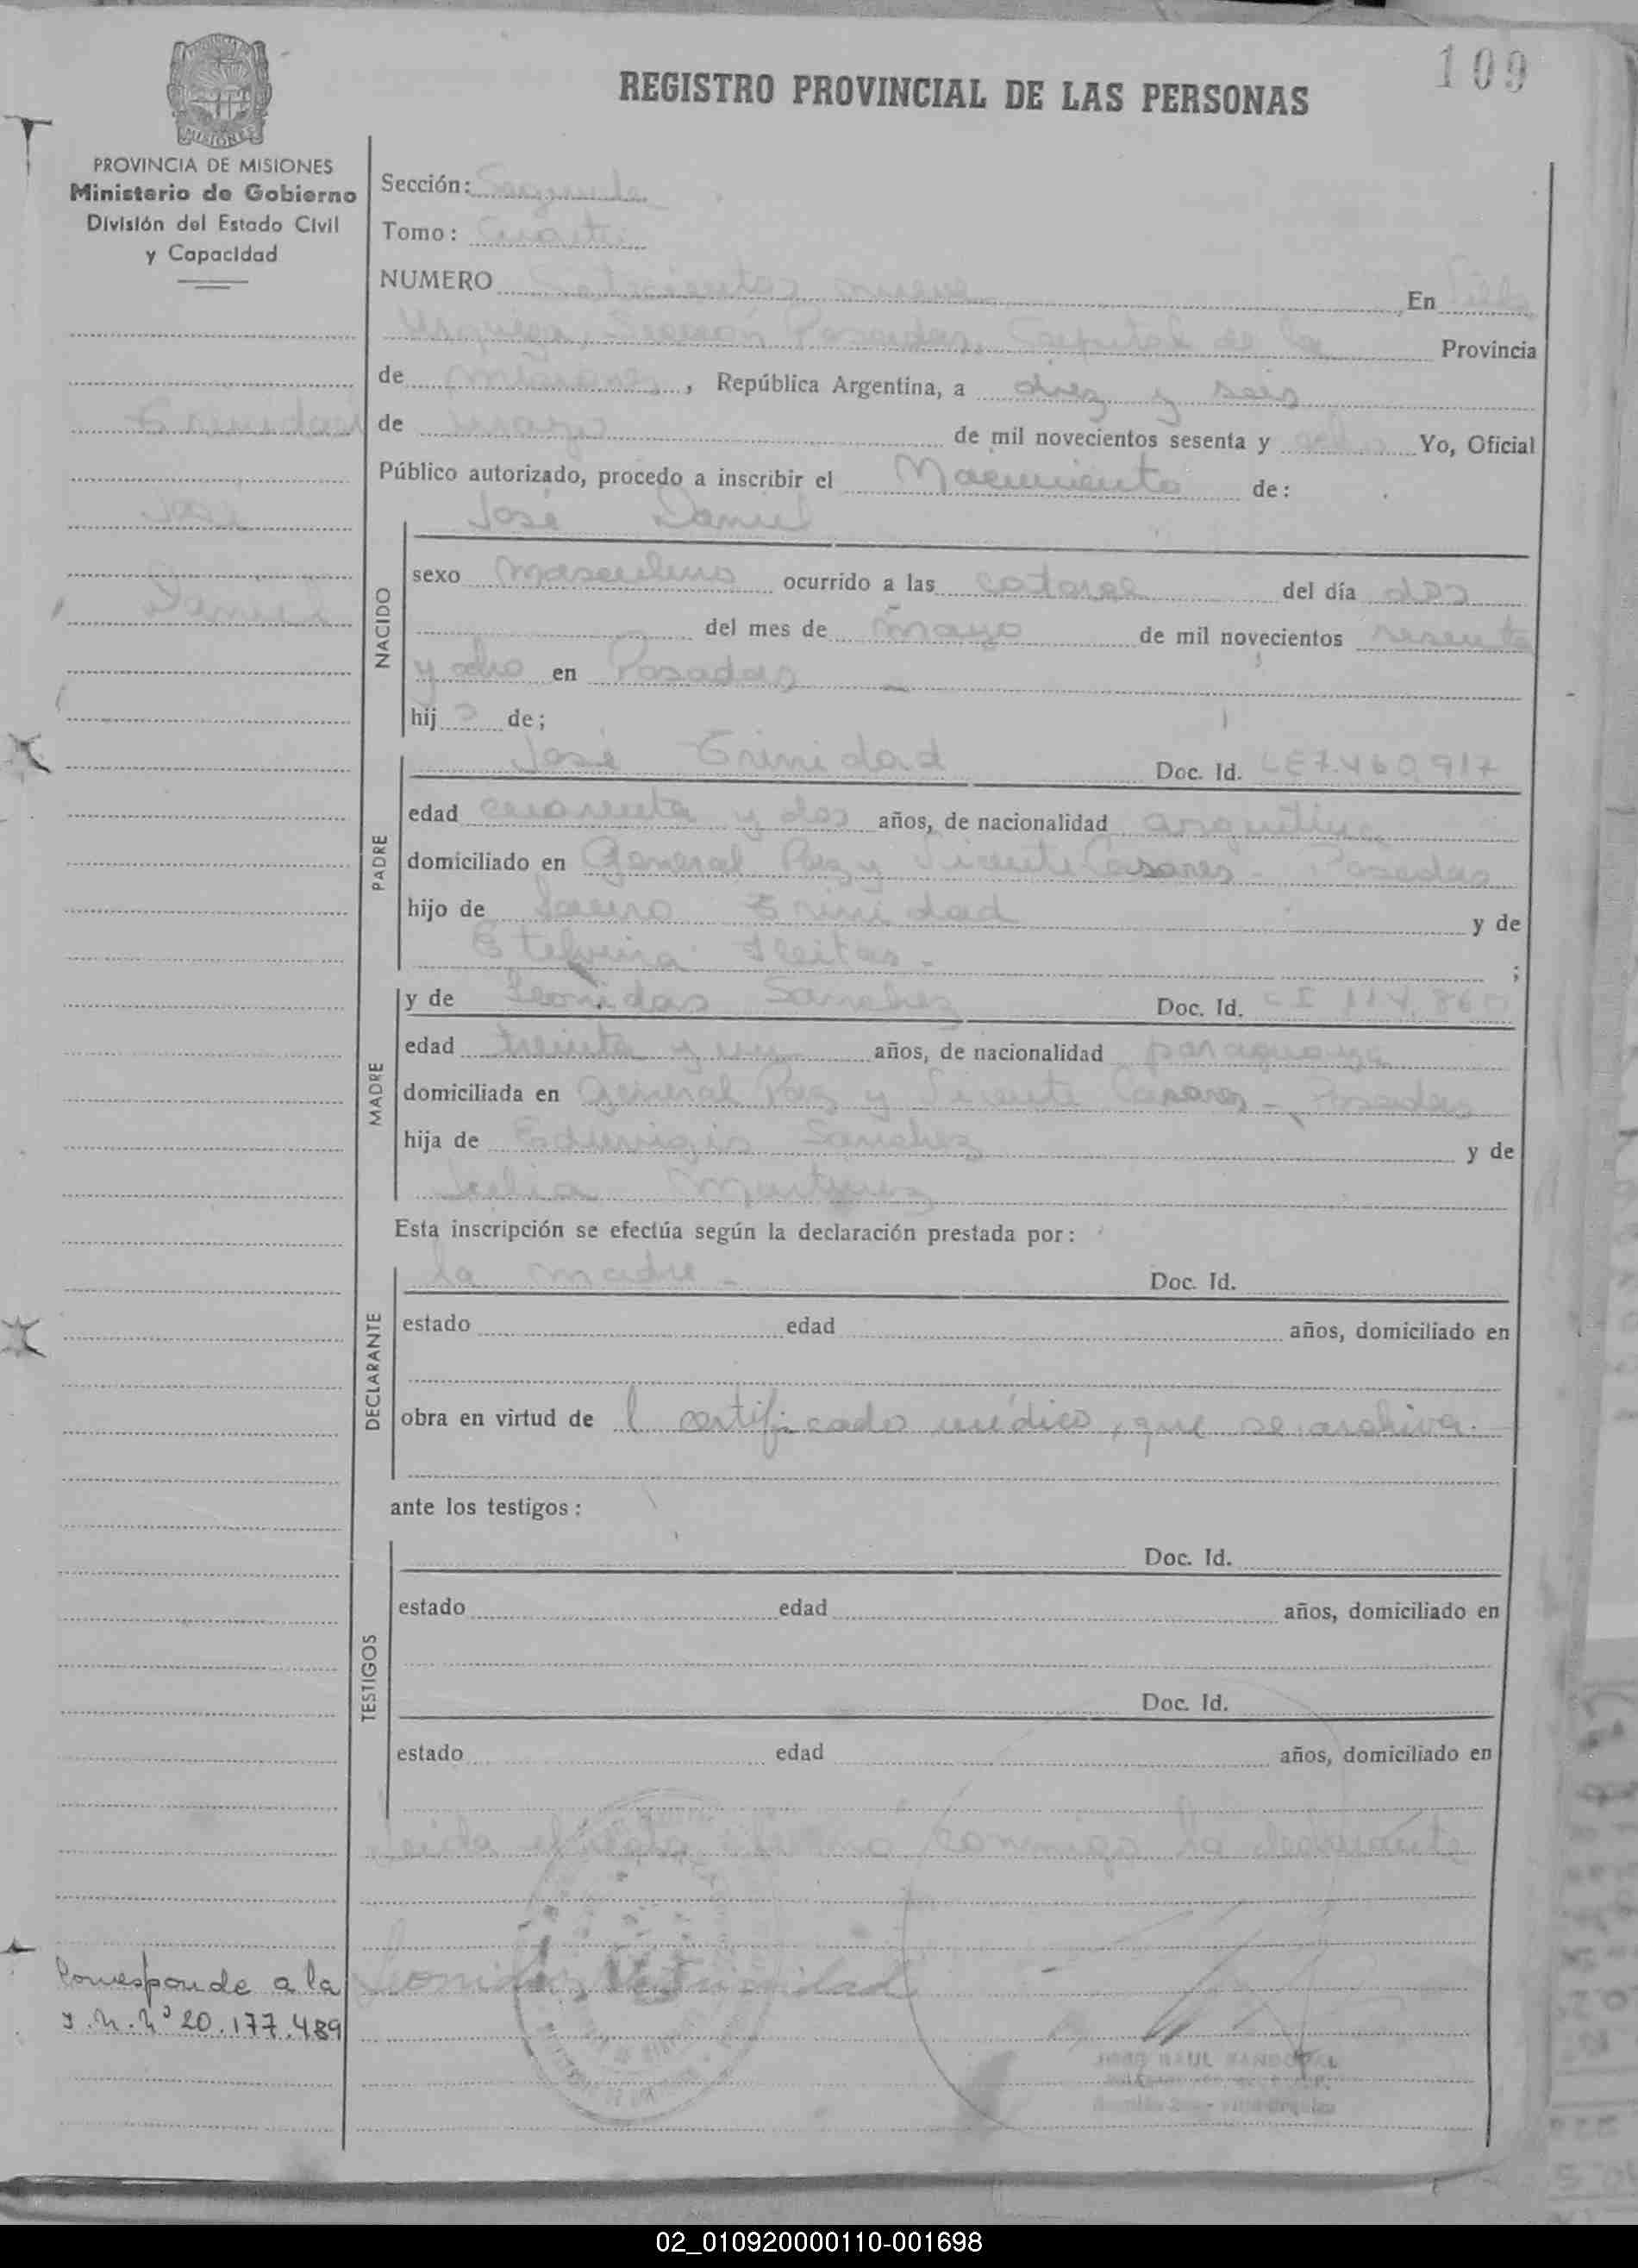 109
REGISTRO PROVINCIAL DE LAS PERSONAS
MISIONES
PROVINCIA DE MISIONES
Ministerio de Gobierno
División del Estado Civil
y Capacidad
Trinidad
José
Daniel
Sección: Segunda
Tomo: Cuarto
NUMERO Setecientos nueve En Villa
Urquiza, Sección Posadas, Capital de la Provincia
de Misiones, República Argentina, a diez y seis
de mayo de mil novecientos sesenta y ocho Yo, Oficial
Público autorizado, procedo a inscribir el Nacimiento de:
NACIDO
José Daniel
sexo masculino ocurrido a las catorce del día dos
del mes de mayo de mil novecientos sesenta
y ocho en Posadas
hijo de;
PADRE
José Trinidad Doc. Id. LE 7.460.917
edad cuarenta y dos años, de nacionalidad argentina
domiciliado en General Paz y Vicente Casares - Posadas
hijo de Trinidad y de
Fleitas - ;
MADRE
y de Leonidas Sanchez Doc. Id. CI 114.860
edad treinta y un años, de nacionalidad paraguaya
domiciliada en General Paz y Vicente Casares - Posadas
hija de Eduvigis Sanchez y de
Martinez
Esta inscripción se efectúa según la declaración prestada por:
DECLARANTE
la madre - Doc. Id.
estado edad años, domiciliado en
obra en virtud de l certificado médico, que se archiva.
ante los testigos:
TESTIGOS
Doc. Id.
estado edad años, domiciliado en
Doc. Id.
estado edad años, domiciliado en
Leida el acta conmigo la declarante
Leonidas de Trinidad
Corresponde a la
I.N.Nº 20.177.489
JOSE RAUL SANDOVAL
02_010920000110-001698